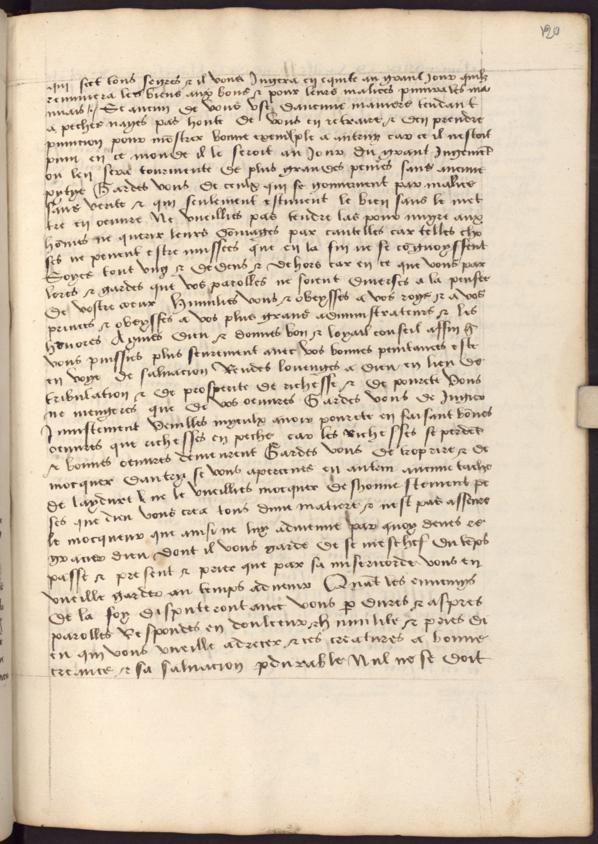 120
qui scet tous segres & il vous Jugera en equite au grant Jour quil
remunera les biens aux bons & pour leurs malices punira les ma
uuais // Se aucun de vous vse daucune maniere tendant
a peches nayes pas honte de vous en retraire & den prendre
punicion pour monstrer bonne exemple a autruy car ce il nestoit
puni en ce monde il le seroit au Jour du grant Jugement
ou len sera tourmente de plus grandes peines sans aucune
pytye Gardes vous de ceulx qui se gouuernent par malice
sans verite & qui seulement estiment le bien sans le met
tre en oeuure Ne vueillies pas tendre las pour nuyre aux
homes ne querir leurs domages par cautelles car telles cho
ses ne peuent estre mussees que en la fin ne se cognoyssent
Soyes tout vng & dedens & dehors car en ce que vous par
leres & gardes que vos parolles ne soient diuerses a la pensee
de vostre coeur Humilies vous & obeysses a vos roys & a vos
princes & obeysses a vos plus grans administrateurs & les
honores Aymes dieu & donnes bon & loyal conseil affin q̃
vous puissies plus seurement auec vos bonnes penitances estre
en voye de saluacion Rendes louenges a dieu en lieu de
tribulation & de prosperite de richesse & de pourete Vous
ne mengeres que de vos oeuures Gardes vous de Juger
Iniustement Veuilles myeulx auoir pourete en faisant bonnes
oeuures que richesses en peche car les richesses se perdent
& bonnes oeuures demeurent Gardes vous de trop rire & de
mocquer dautruy se vous aperceues en autrui aucune tache
de laydure ne le vueillies mocquer deshonnestement pe
ses que dieu vous crea tous dune matiere & nest pas asseure
le mocqueur que ainsi ne luy aduienne par quoy deues re
gracier dieu dont il vous garde de se meschef du teps
passe & present & prier que par sa misericorde vous en
vueille garder au temps aduenir Quãt les ennemys
de la foy disputeront auec vous p dures & aspres
parolles Respondes en doulceur & humilite & pries di
eu qui vous vueille adrecer & ces creatures a bonne
creance & sa saluacion pdurable Nul ne se doit